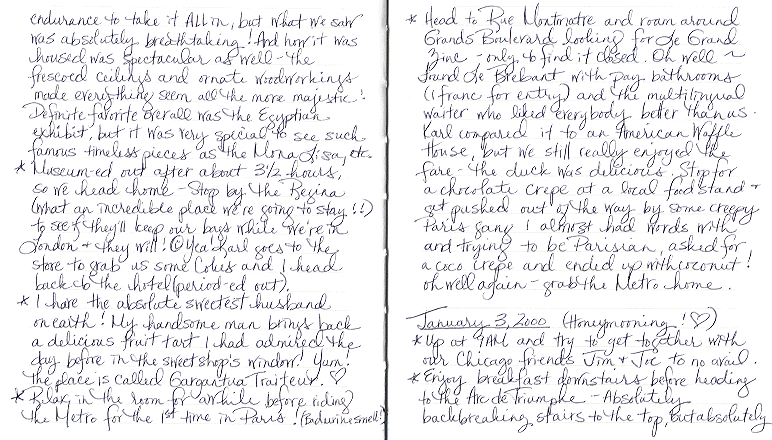 endurance to take it ALL in, but what we saw
was absolutely breathtaking! And how it was
housed was spectacular as well - the
frescoed ceilings and ornate woodworkings
made everything seem all the more majestic!
Definite favorite overall was the Egyptian
exhibit, but it was very special to see such
famous timeless pieces as the Mona Lisa, etc.
* Museum-ed out after about 3 1/2 hours,
so we head home - Stop by the Regina
(what an incredible place we're going to stay!!)
to see if they'll keep our bags while we're in
London & they will! ☺ Yea! Karl goes to the
store to grab us some Cokes and I head
back to the hotel (period-ed out).
* I have the absolute sweetest husband
on earth! My handsome man brings back
a delicious fruit tart I had admired the
day before in the sweet shop's window! Yum!
The place is called Gargantua Traiteur. ♡
* Relax in the room for awhile before riding
the Metro for the 1st time in Paris! (Bad urine smell!)
* Head to Rue Montmatre and roam around
Grands Boulevard looking for Le Grand
Zinc - only to find it closed. Oh well ~
found Le Brebant with pay bathrooms
(1 franc for entry) and the multilingual
waiter who liked everybody better than us.
Karl compared it to an American Waffle
House, but we still really enjoyed the
fare - the duck was delicious. Stop for
a chocolate crepe at a local food stand &
get pushed out of the way by some creepy
Paris gang I almost had words with
and trying to be Parisian, asked for
a coco crepe and ended up with coconut!
oh well again - grab the Metro home.
January 3, 2000 (Honeymooning! ♡)
* Up at 9AM and try to get together with
our Chicago friends Jim & Joe to no avail.
* Enjoy breakfast downstairs before heading
to the Arc de Triumphe - Absolutely
backbreaking stairs to the top, but absolutely